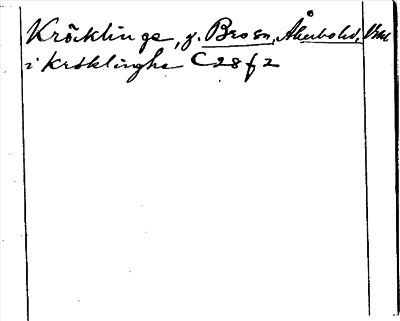 Kräcklinge, g. Broen, Åkerbohd,
i kräklinghe C 28 f 2